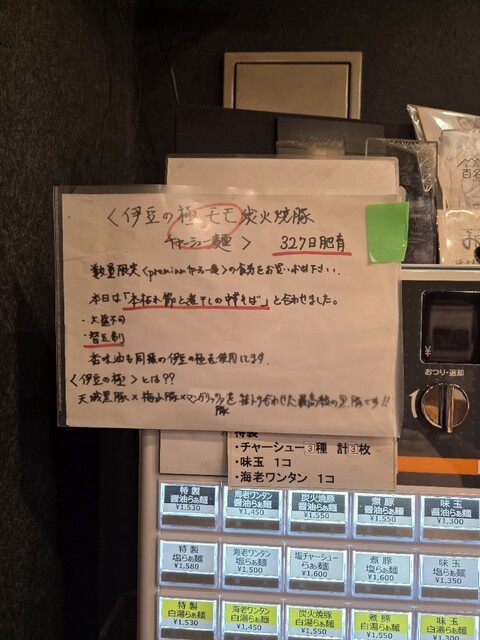 <伊豆の極 モモ炭火焼豚
チャーシュー麺> 327日肥育
数量限定<premiumチャーシュー麺>の食券をお買い求め下さい。
本日は「本枯れ節と煮干しの中華そば」と合わせました。
・大盛不可
・替玉割
香味油も同様の伊豆の極を使用してます。
<伊豆の極>とは??
天城黒豚×梅山豚×マンガリッツァ豚を掛け合わせた最高格の黒豚です!!
おつり・返却
¥
特製
・チャーシュー3種 計3枚
・味玉 1コ
・海老ワンタン 1コ
特製 醤油らぁ麺 ¥1,530
海老ワンタン 醤油らぁ麺 ¥1,450
炭火焼豚 醤油らぁ麺 ¥1,550
煮豚 醤油らぁ麺 ¥1,550
味玉 醤油らぁ麺 ¥1,300
特製 塩らぁ麺 ¥1,580
海老ワンタン 塩らぁ麺 ¥1,500
塩チャーシュー らぁ麺 ¥1,600
煮豚 塩らぁ麺 ¥1,600
味玉 塩らぁ麺 ¥1,350
特製 白湯らぁ麺 ¥1,530
海老ワンタン 白湯らぁ麺 ¥1,450
炭火焼豚 白湯らぁ麺 ¥1,550
煮豚 白湯らぁ麺 ¥1,550
味玉 白湯らぁ麺 ¥1,300